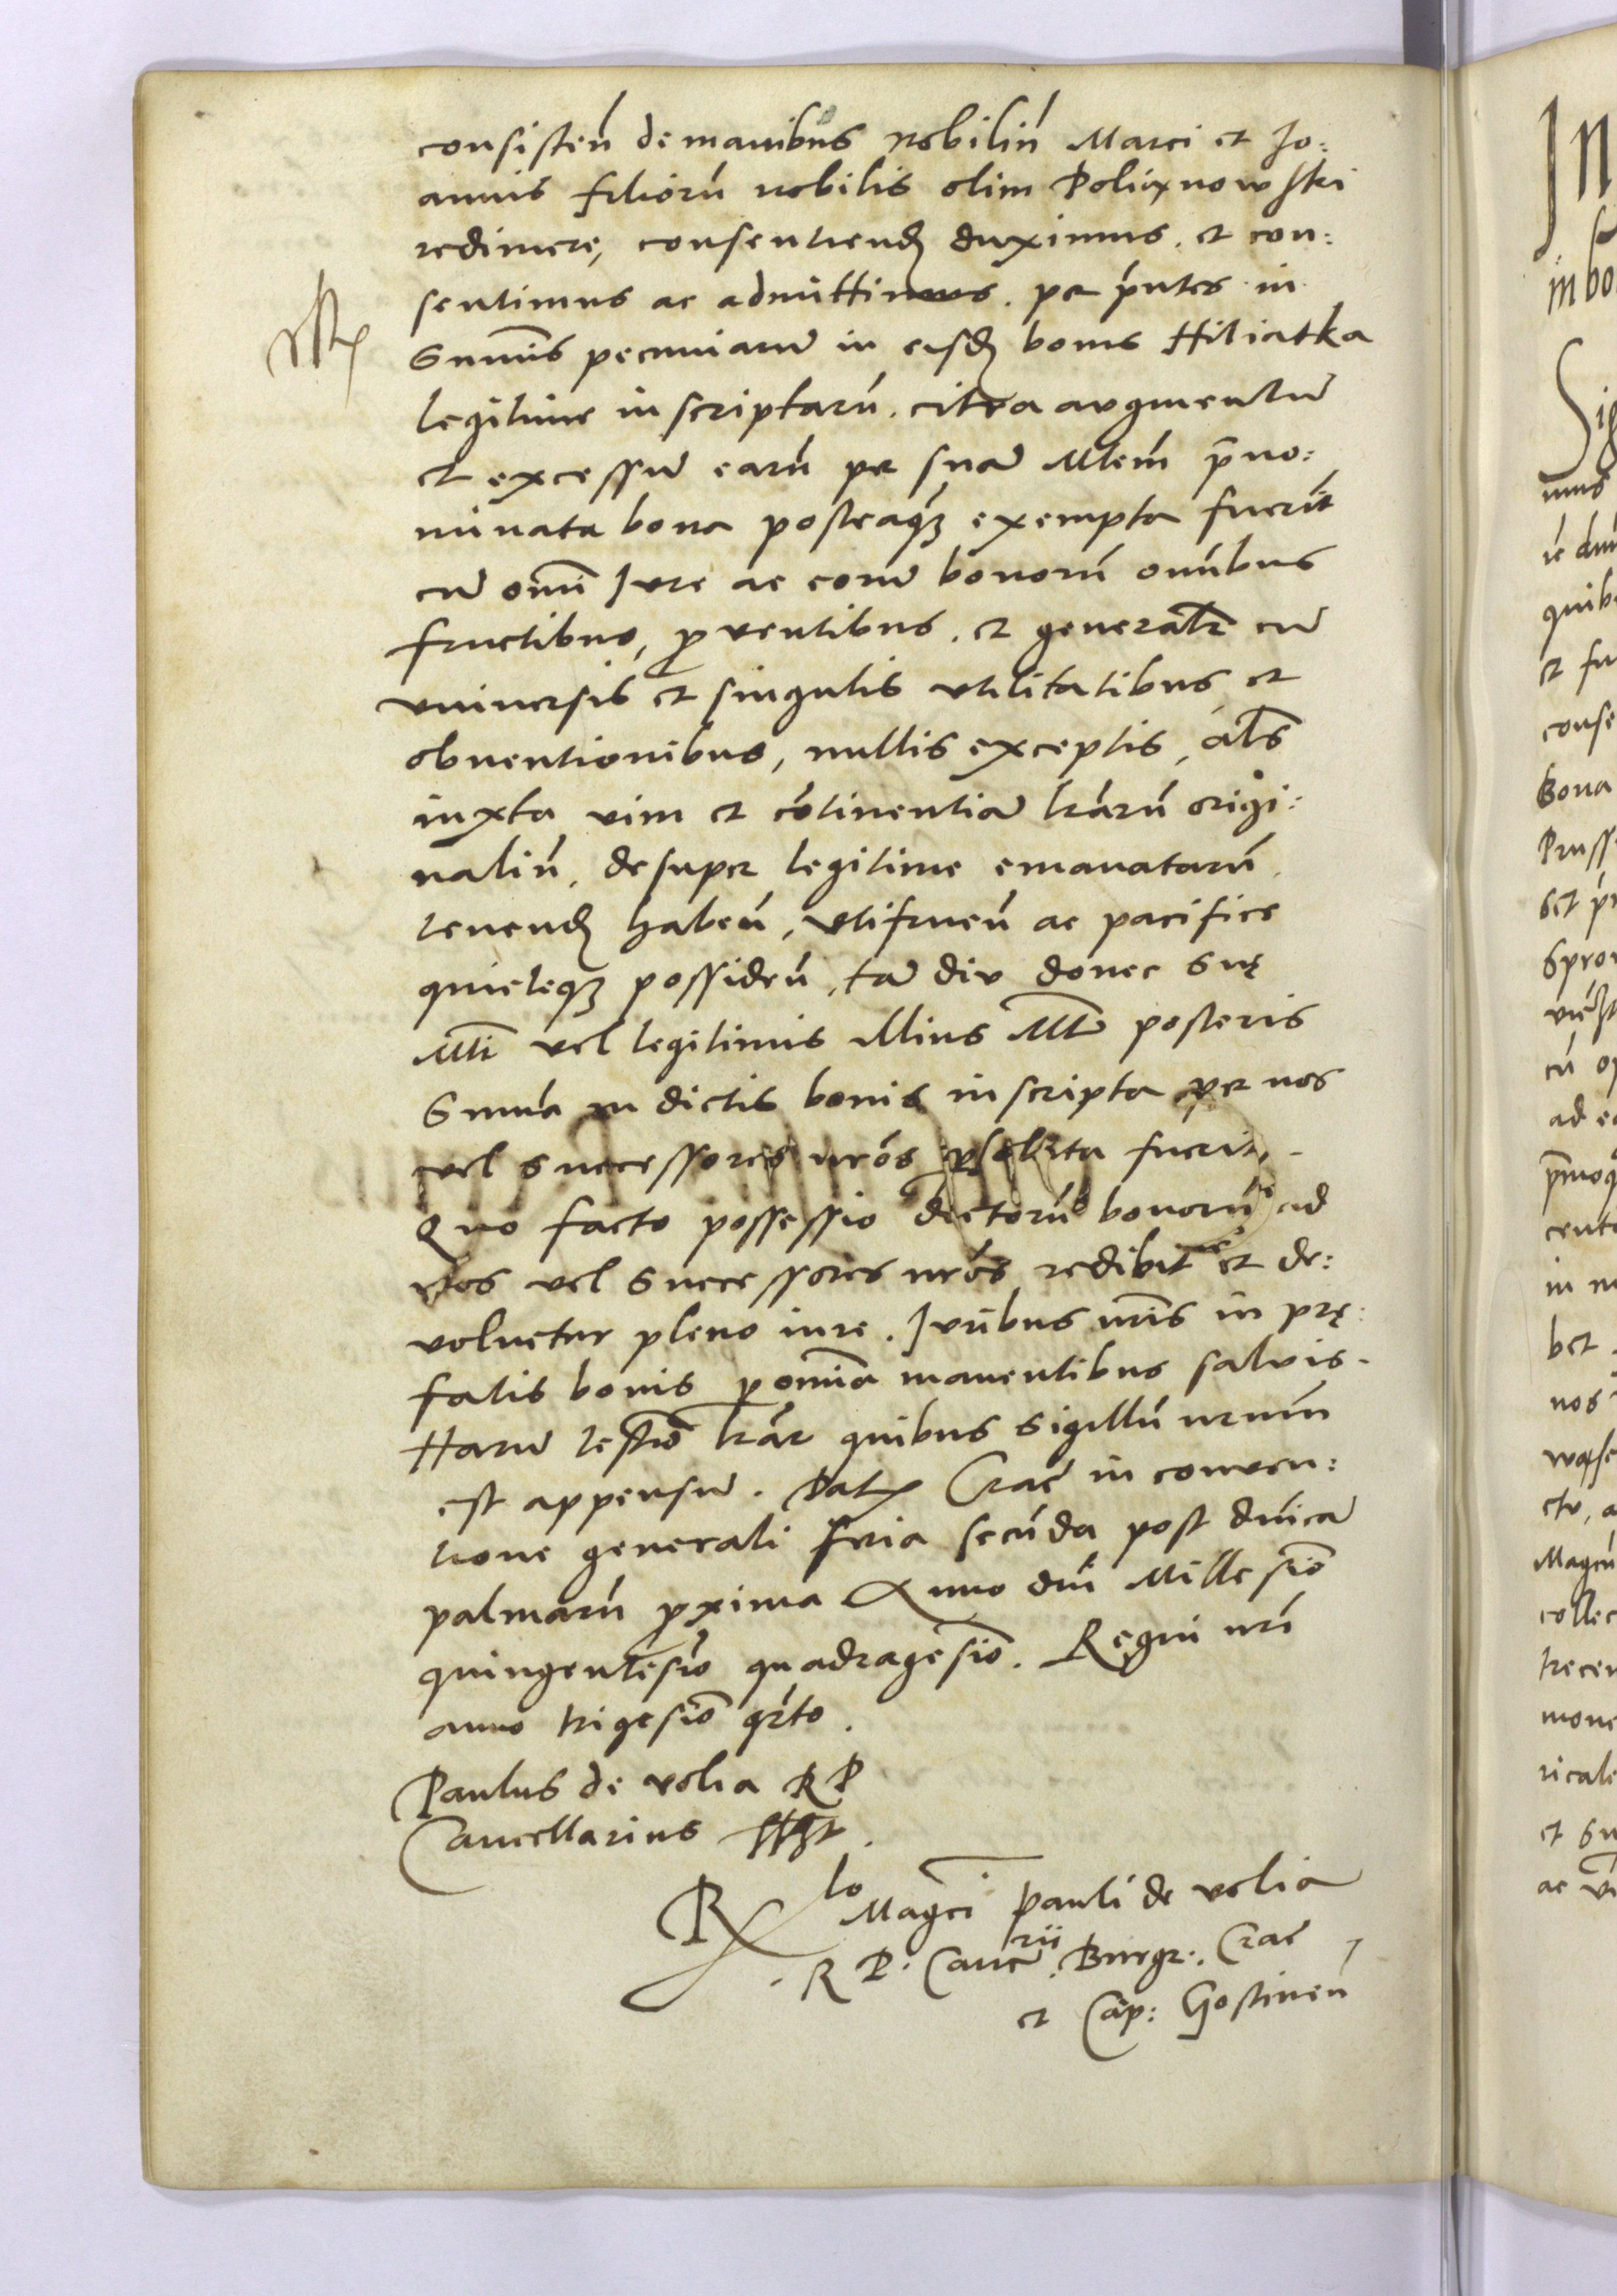 consisteń de manibus nobiliū Marci et Jo:
annis filiorū nobilis olim Polixnowski
redimere, consentiend duximus. et con:
sentimus ac admittimus. per pńtes in
Summis pecuniarū in eisd bonis Hiliatka
legitime inscriptarū. citra augmentū
et excessū earū per suā Mtem p̄no:
minata bona posteaq3 exempta fuerit
cū omī Jure ac eorū bonorū omībus
fructibus, proventibus. et generalr cū
universis et singulis utilitatibus et
obventionibus, nullis exceptis, als
iuxta vim et cōtinentiā lrarū origi:
naliū, desuper legitime emanatarū
tenend habeń, utifrueń ac pacifice
quieteq3 possideń, tā diu donec Suę
Mti vel legitimis illius Mtis posteris
Summa in dictis bonis inscripta per nos
vel successores nrōs psoluta fuerit,
Quo facto possessio dictorū bonorū ad
nos vel successores nrōs redibit et de:
voluetur pleno iure. Juribus nrīs in prę:
fatis bonis p omīa manentibus salvis.
Harū testīo lrar quibus Sigillū nrum
est appensū. Dat Crac in conven:
tione generali feria secūda post dnīca
palmarū pxima Anno dnī Millesīo
quingentesīo quadragesīo. Regni nrī
anno trigesīo qrto.
Paulus de volia RP
Cancellarius sst.
Rlo Magci Pauli de volia
R P. Cancrii. Burgr:. Crac
et Cap: Gostineń